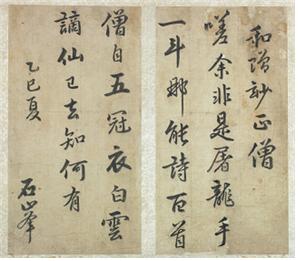 和贈妙正僧
嗟余非是屠龍手
一斗那能詩百首
僧自五冠衣白雲
謫仙已去知何有
乙巳夏
石峯